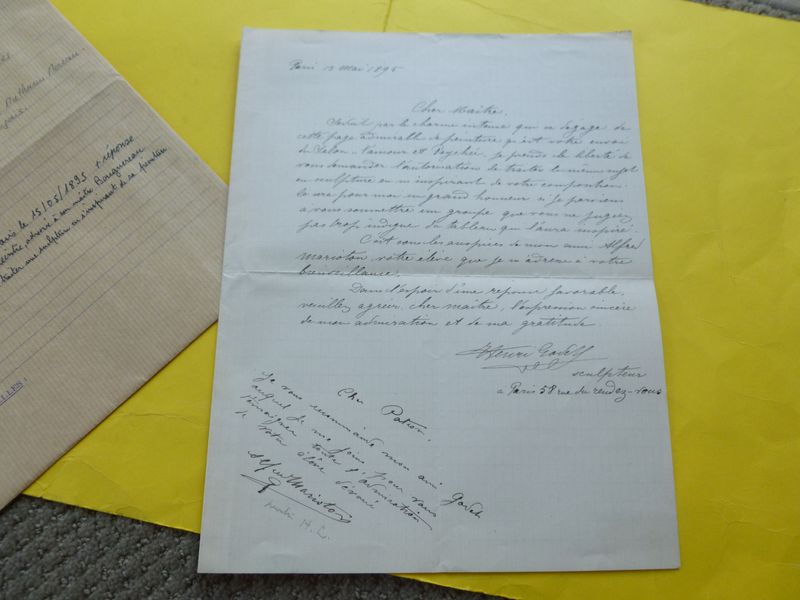 Mathurin Moreau
Paris le 15/05/1895 + réponse
adressé à son maître Bouguereau
traiter une sculpture en s'inspirant de sa peinture
Paris 13 mai 1895
Cher Maître,
Séduit par le charme intense qui se dégage de
cette page admirable de peinture qu'est votre envoi
du Salon "l'amour et Psychée, je prends la liberté de
vous demander l'autorisation de traiter le même sujet
en sculpture en m'inspirant de votre composition.
Ce sera pour moi un grand honneur si je parviens
à vous soumettre un groupe que vous ne jugiez
pas trop indigne du tableau qui l'aura inspiré.
C'est sous les auspices de mon ami Alfred
Marioton votre élève que je m'adresse à votre
bienveillance.
Dans l'espoir d'une réponse favorable,
veuillez agréer, cher maître, l'expression sincère
de mon admiration et de ma gratitude.
Henri Godet
sculpteur
à Paris 58 rue du rendez-vous
Cher Patron,
Je vous recommande mon ami Godet
auquel je me joins pour vous
témoigner toute l'admiration
de votre élève dévoué
Alfred Marioton